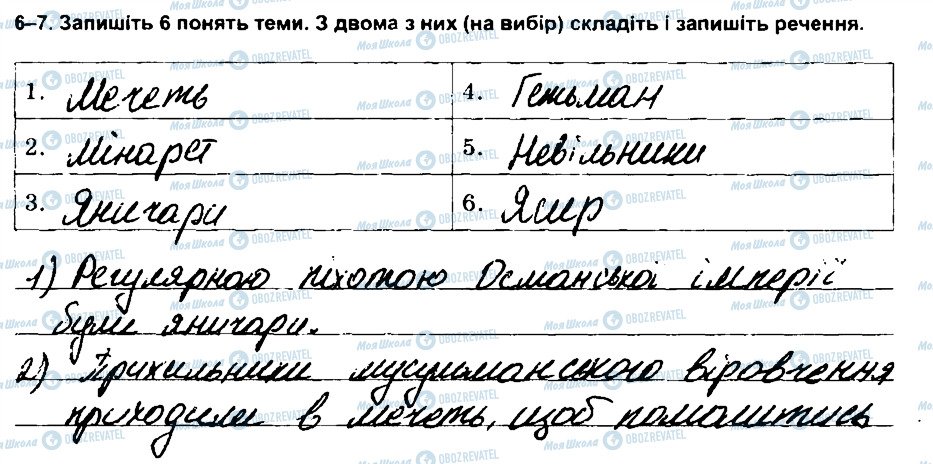 6–7. Запишіть 6 понять теми. З двома з них (на вибір) складіть і запишіть речення.
1. Мечеть
4. Гетьман
2. Мінарет
5. Невільники
3. Яничари
6. Ясир
1) Регулярною піхотою Османської імперії
були яничари.
2) Прихильники мусульманського віровчення
приходили в мечеть, щоб помолитись